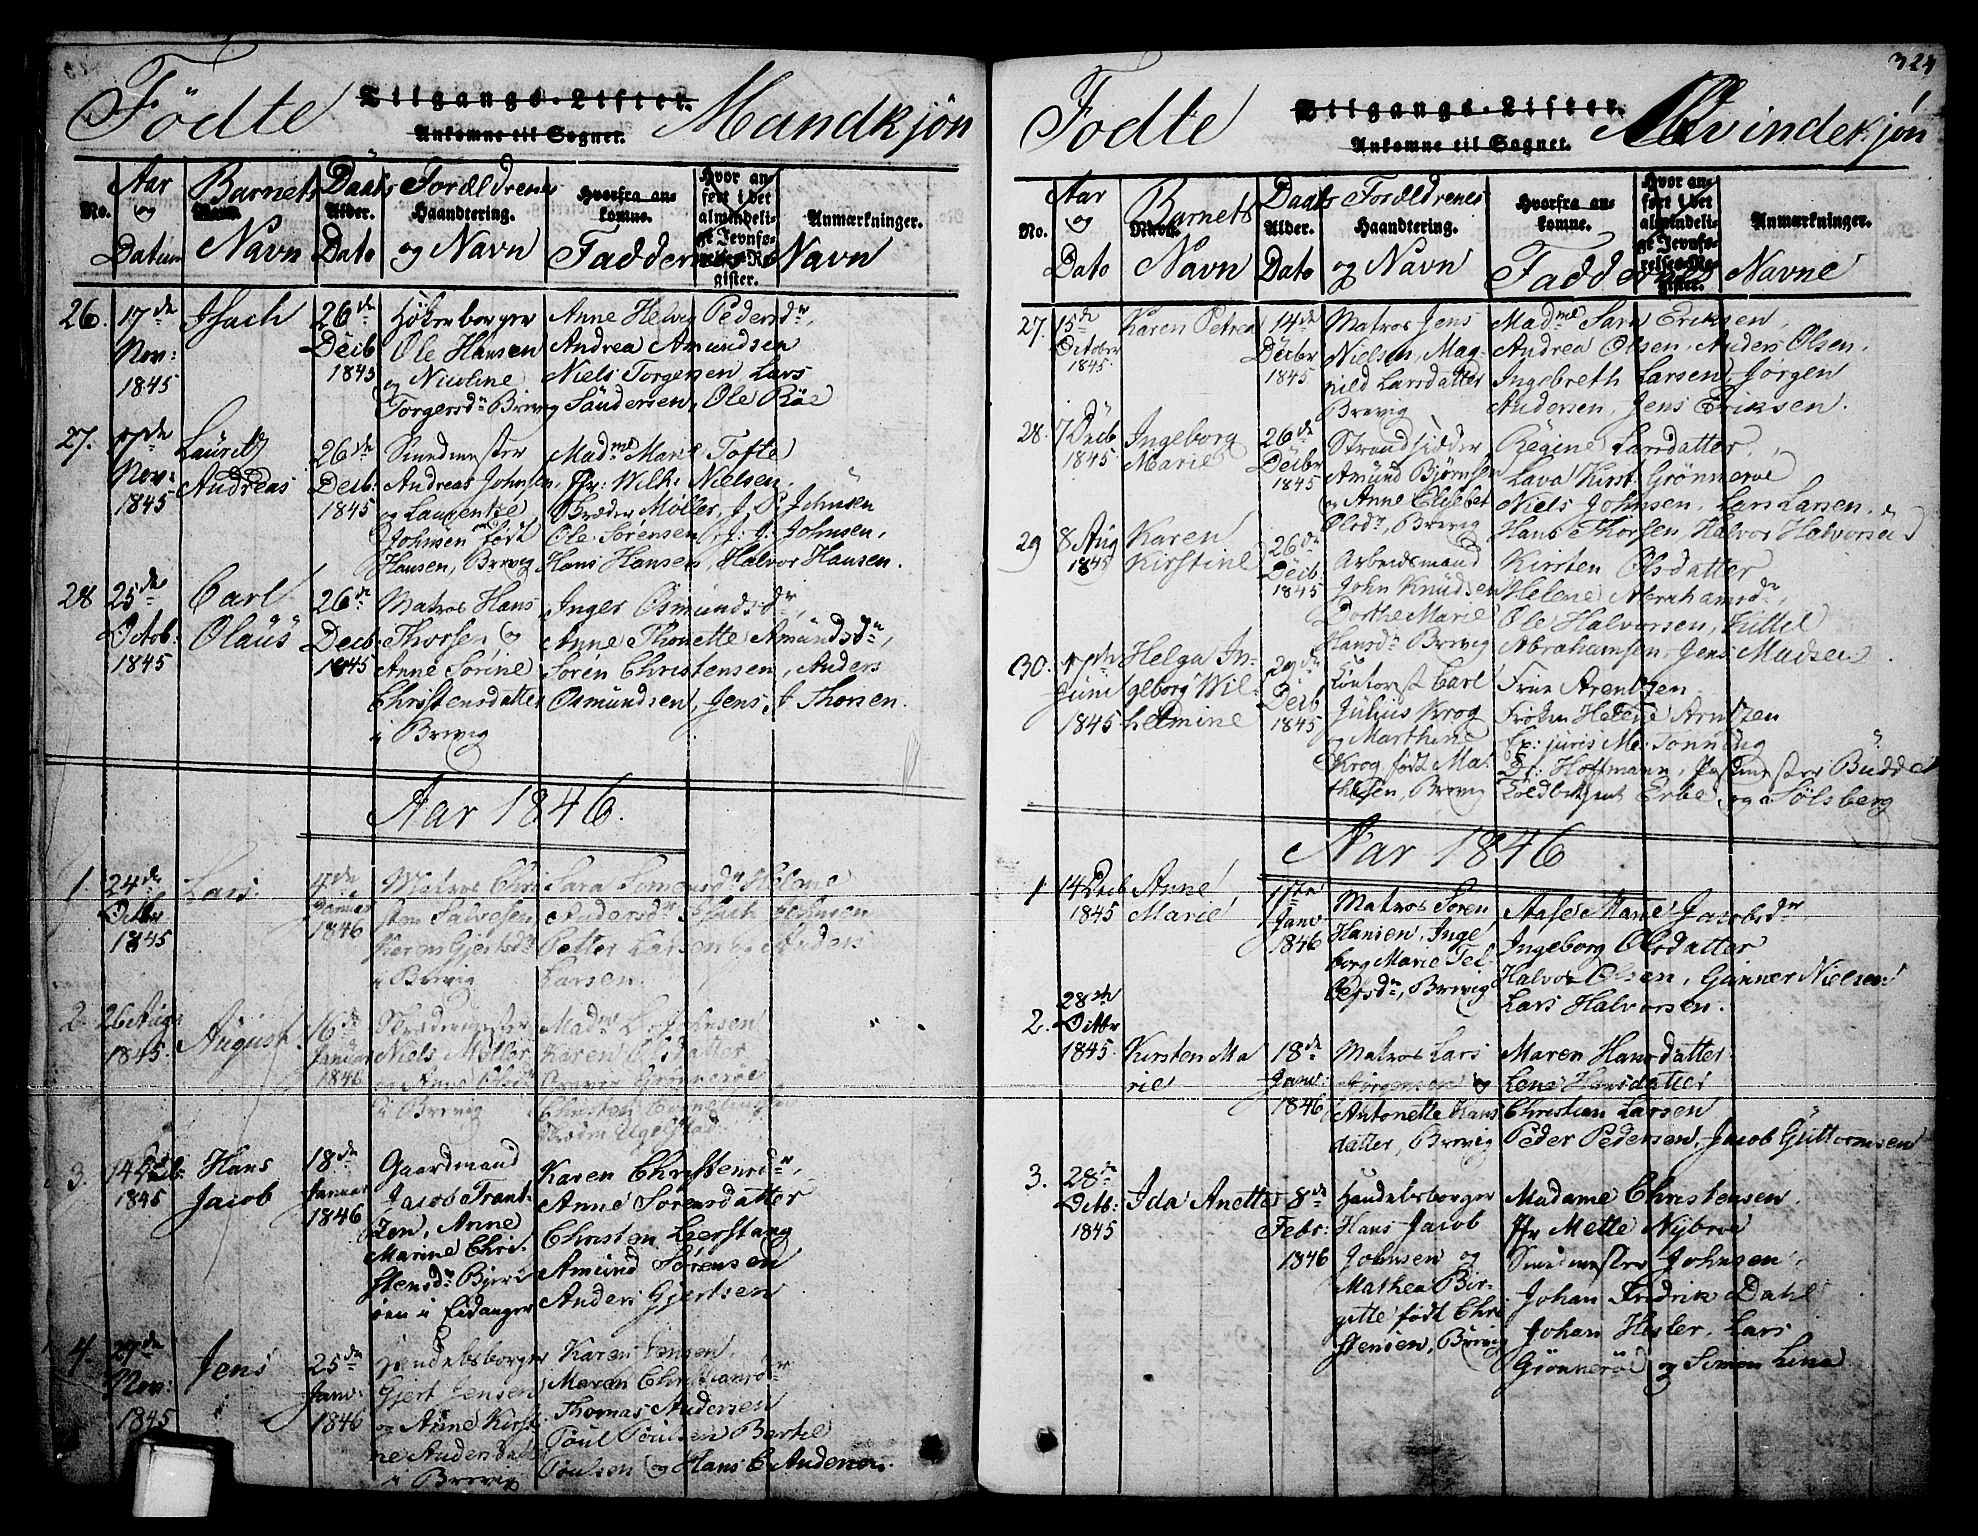 Födte Tilgangs-Lister. Mandkjön
Ankomne til Sognet.
No. Aar og Datum
Barnets Navn
Daabs Alder. Dato
Forældrenes Haandtering. og Navn
Hvorfra ankomne. Faddernes Navn
Hvor anført i det almindelige Jevnførelses-Register.
Anmærkninger.
26. 17de Nov: 1845
Isach
26de Decb 1845
Høkerborger
Ole Hansen
og Nicoline
Torgersdr Brevig
Anne Helvig Pedersdr,
Andrea Amundsen
Niels Torgersen Lars
Sandersen, Ole Röe
27. 17de Nov: 1845
Lauritz
Andreas
26de Decb: 1845
Smedmester
Andreas Johnsen,
og Laurentze
Johnsen født
Hansen, Brevig
Madme Marie Tofte
Jfr: Wilh: Nielsen,
Skræder Møller, J. P. Johnsen
Ole Sørensen, J. J. Johnsen,
Hans Hansen, Halvor Hansen.
28 25de Octob: 1845
Carl
Olaüs
26de Decb: 1845
Matros Hans
Thorsen og
Anne Sørine
Christensdatter
i Brevig
Inger Osmundsdr,
Anne Thonette Amundsdr,
Søren Christensen, Anders
Osmundsen, Jens J Thorsen.
Aar 1846.
1. 24de Octbr 1845
Lars
4de Januar 1846
Matros Chri
sten Salvesen
Karen Gjertsdr
i Brevig
Sara Simonsdr Helene
Andersdr Isach Johnsen
Petter Larsen og Anders
Larsen.
2. 26 Aug: 1845.
August.
16de Januar 1846
Skrædermester
Niels Møller
og Anne Olsdr
i Brevig
Madme L. Johnsen
Karen Olsdatter
Grønnerøe
Christen Corneliussen
3. 14 Decb: 1845
Hans
Jacob
18de Januar 1846
Gaardmand
Jacob Frant-
zen, Anne
Marine Chri-
stensdr Bjerk
øen i Eidanger
Karen Christensdr,
Anne Sørensdatter
Christen Lierstang
Amund Sørensen
Anders Gjertsen
4. 29de Nov: 1845
Jens
25de Janv: 1846
Handelsborger
Gjert Jensen
og Anne Kirsti
ne Andersdatter
i Brevig
Karen Jensen,
Maren Christiansdr
Thomas Andersen
Poul Poulsen Bertel
Poulsen og Hans C Andersen.
324
Födte Tilgangs-Lister. Qvindekjøn
Ankomne til Sognet.
No. Aar og Dato
Barnets Navn
Daabs Alder. Dato
Forældrenes Haandtering. og Navn
Hvorfra ankomne. Faddernes Navne
Hvor anført i det almindelige Jevnførelses-Register.
Anmærkninger.
27. 15de October 1845.
Karen Petrea
14de Decbr 1845
Matros Jens
Nielsen, Mag-
nild Larsdatter
Brevig
Madme Sara Eriksen,
Andrea Olsen, Anders Olsen,
Ingebreth Larsen, Jørgen
Andersen, Jens Eriksen.
28. 7 Decb 1845.
Ingeborg
Marie
26de Decbr 1845
Strandsidder
Amund Bjørnsen
og Anne Elisebet
Olsdr, Brevig
Regine Larsdatter,
Lava Kirst. Grönnerøe
Niels Johnsen, Lars Larsen,
Hans Thorsen, Halvor Halvorsen
29 8 Aug 1845
Karen
Kirstine
26de Decb. 1845
Arbeidsmand
John Knudsen
Dorthe Marie
Hansdr Brevig
Kirsten Olsdatter
Helene Abrahamsdr,
Ole Halvorsen, Kittel
Abrahamsen, Jens Madsen.
30. 17de Juni 1845
Helga In-
geborg Wil-
helmine
29de Decb 1845
Contorist Carl
Julius Krog
og Marthine
Krog født Ma-
thesen, Brevig
Frue Arentzen
Frøken Helene Arntzen
Ex: juris Me: Tønning
Dr: Hoffmann, Postmester Budde
Toldbetjent Erbe og Sølsberg
Aar 1846
1. 14 Decb 1845
Anne
Marie
11te Janv 1846
Matros Søren
Hansen, Inge
borg Marie Tel
lefsdr, Brevig
Aase Marie Jacobsdr
Ingeborg Olsdatter
Halvor Olsen, Gunner Nielsen
Lars Halvorsen.
2. 28de Octbr 1845.
Kirsten Ma
rie
18de Janv: 1846
Matros Lars
Jørgensen og
Antonette Hans
datter, Brevig
Maren Hansdatter
Lene Hansdatter
Christian Larsen
Peder Pedersen, Jacob Guttormsen
3. 28de Octb: 1845
Ida Anette
8de Febr: 1846
Handelsborger
Hans Jacob
Johnsen og
Mathea Bir-
gitte født Chri
stensen, Brevig
Madame Christensen.
Jfr Mette Nybroe
Smedmester Johnsen,
Johan Fredrik Dahl
Johan Hesler, Lars
Grønnerøe og Simon Lina